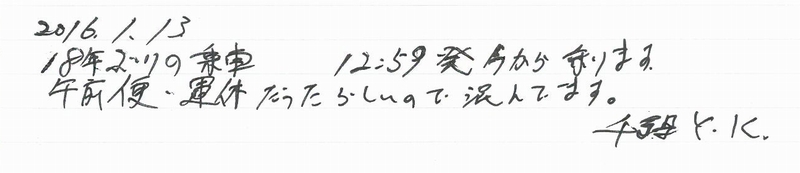 2016.1.13
18年ぶりの乗車　　12:59発 今から乗ります
午前便・運休だったらしいので混んでます。
千葉 Y.K.